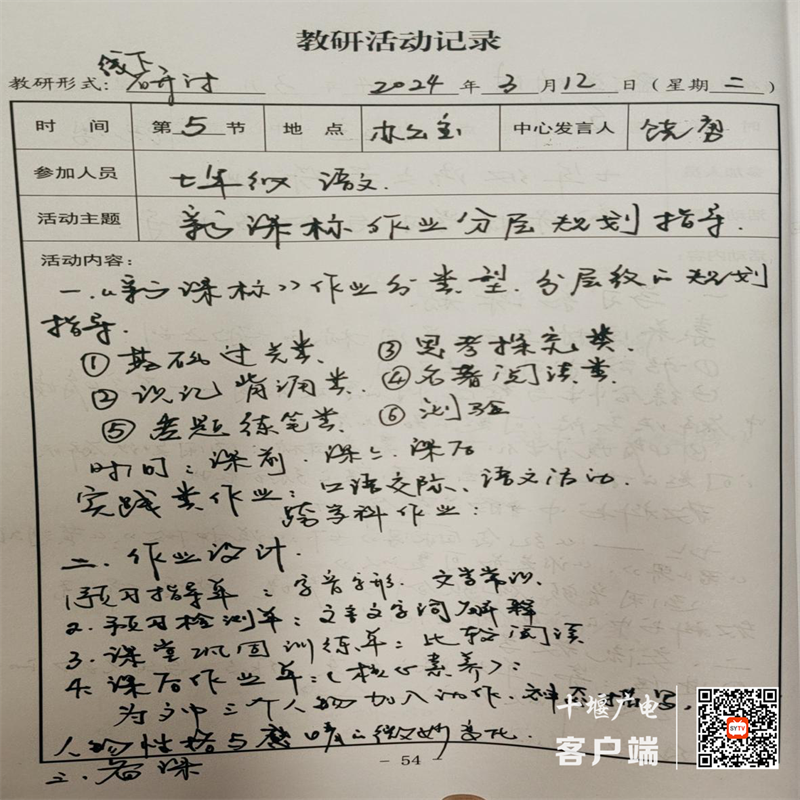 教研活动记录
教研形式: 线下研讨 2024 年 3 月 12 日（星期 二 ）
时 间 第 5 节 地 点 办公室 中心发言人 饶勇
参加人员 七年级 语文.
活动主题 新课标作业分层规划指导.
活动内容:
一.《新课标》作业分类型.分层级的规划
指导.
①基础过关类. ③思考探究类.
②识记背诵类. ④名著阅读类.
⑤ 练笔类. ⑥测验
时间：课前.课上.课后
实践类作业：口语交际、语文活动.
跨学科作业：
二.作业设计.
1.预习指导单：字音字形.文学常识.
2.预习检测单：文言文字词解释
3.课堂巩固训练单：比较阅读
4.课后作业单：（核心素养）：
为文中三个人物加入动作.神态描写，
人物性格与感情的微妙变化.
三.备课
- 54 -
十堰广电
客户端
SYTV